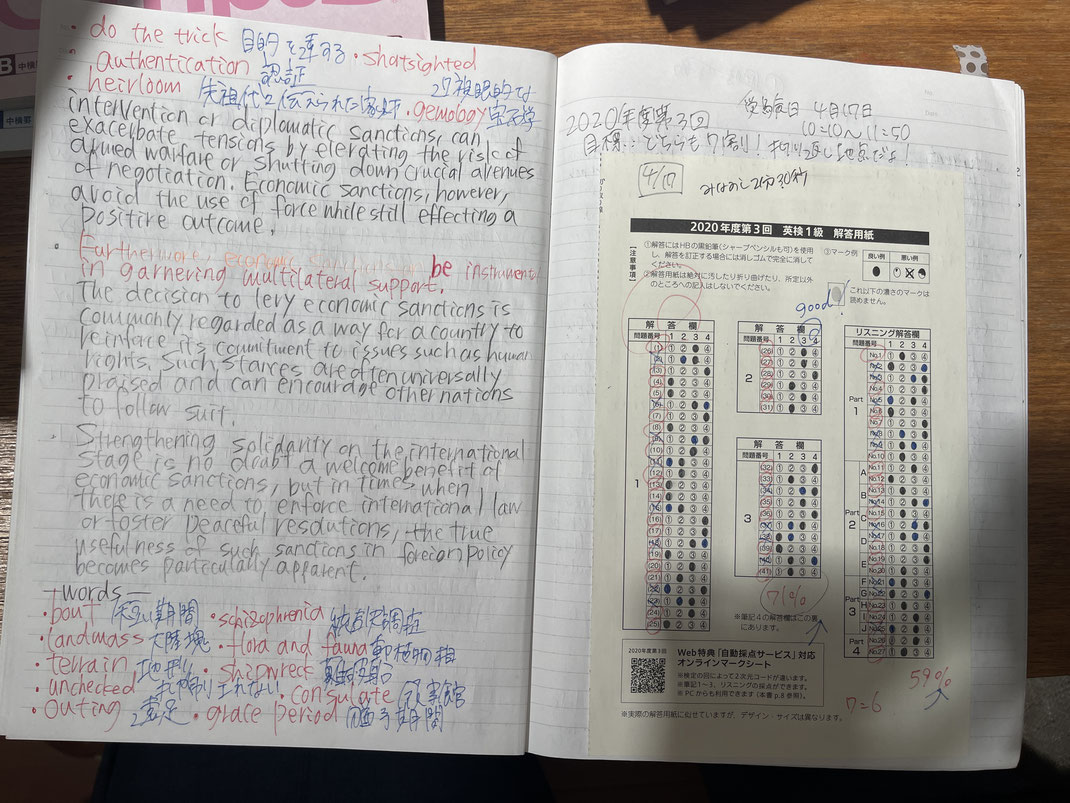 ・do the trick 目的を達する ・shortsighted
authentication 認証
・heirloom 先祖代々伝えられた家財 ・gemology 宝石学
intervention or diplomatic sanctions, can
exacerbate tensions by elerating the risk of
armed warfare or shutting down crucial avenues
of negotiation. Economic sanctions, however,
avoid the use of force while still effecting a
positive outcome.
・Furthermore, economic be instrument
in garnering multilateral support.
The decision to levy economic sanctions is
commonly regarded as a way for a country to
reinforce its commitment to issues such as human
rights. Such stances are often universally
praised and can encourage other nations
to follow suit.
Strengthening solidarity on the international
stage is no doubt a welcome benefit of
economic sanctions, but in times when
there is a need to enforce international law
or foster peaceful resolutions, the true
usefulness of such sanctions in foreign policy
becomes particularly apparent.
words
・bout 短い期間 ・schizophrenia 統合失調症
・landmass 大陸塊 ・flora and fauna 動植物相
・terrain 地形 ・shipwreck 難船
・unchecked ・consulate 領事館
・outing 遠足 ・grace period 猶予期間
2020年度第3回
受験日 4月17日
10:10〜11:50
目標:どちらも7割! 折り返し地点だよ!
4/17
2分30秒
2020年度第3回 英検1級 解答用紙
【注意事項】
①解答にはHBの黒鉛筆(シャープペンシルも可)を使用し、解答を訂正する場合には消しゴムで完全に消してください。
②解答用紙は絶対に汚したり折り曲げたり、所定以外のところへの記入はしないでください。
③マーク例
良い例 悪い例
これ以下の濃さのマークは読めません。
good
解答欄
問題番号 1 2 3 4
1
(1)
(3)
(4)
(5)
(7)
(8)
(12)
(13)
(14)
(16)
(17)
(19)
(20)
(21)
(24)
(25)
解答欄
問題番号 1 2 3 4
2
(26)
(27)
(28)
(29)
(30)
(31)
解答欄
問題番号 1 2 3 4
3
(32)
(33)
(34)
(35)
(36)
(39)
(41)
71%
※筆記4の解答欄はこの裏にあります。
リスニング解答欄
1 2 3 4
Part 1
No.1
No.2
No.3
No.4
No.5
No.6
No.7
No.8
No.9
No.10
Part 2
A
No.11
No.12
B
No.13
No.14
C
No.15
No.16
D
No.17
No.18
E
No.19
No.20
Part 3
F
No.21
G
No.22
H
No.23
I
No.24
J
No.25
Part 4
No.26
No.27
59%
7=6
2020年度第3回
Web特典「自動採点サービス」対応
オンラインマークシート
※検定の回によって2次元コードが違います。
※筆記1〜3、リスニングの採点ができます。
※PCからも利用できます(本書p.8参照)。
※実際の解答用紙に似せていますが、デザイン・サイズは異なります。